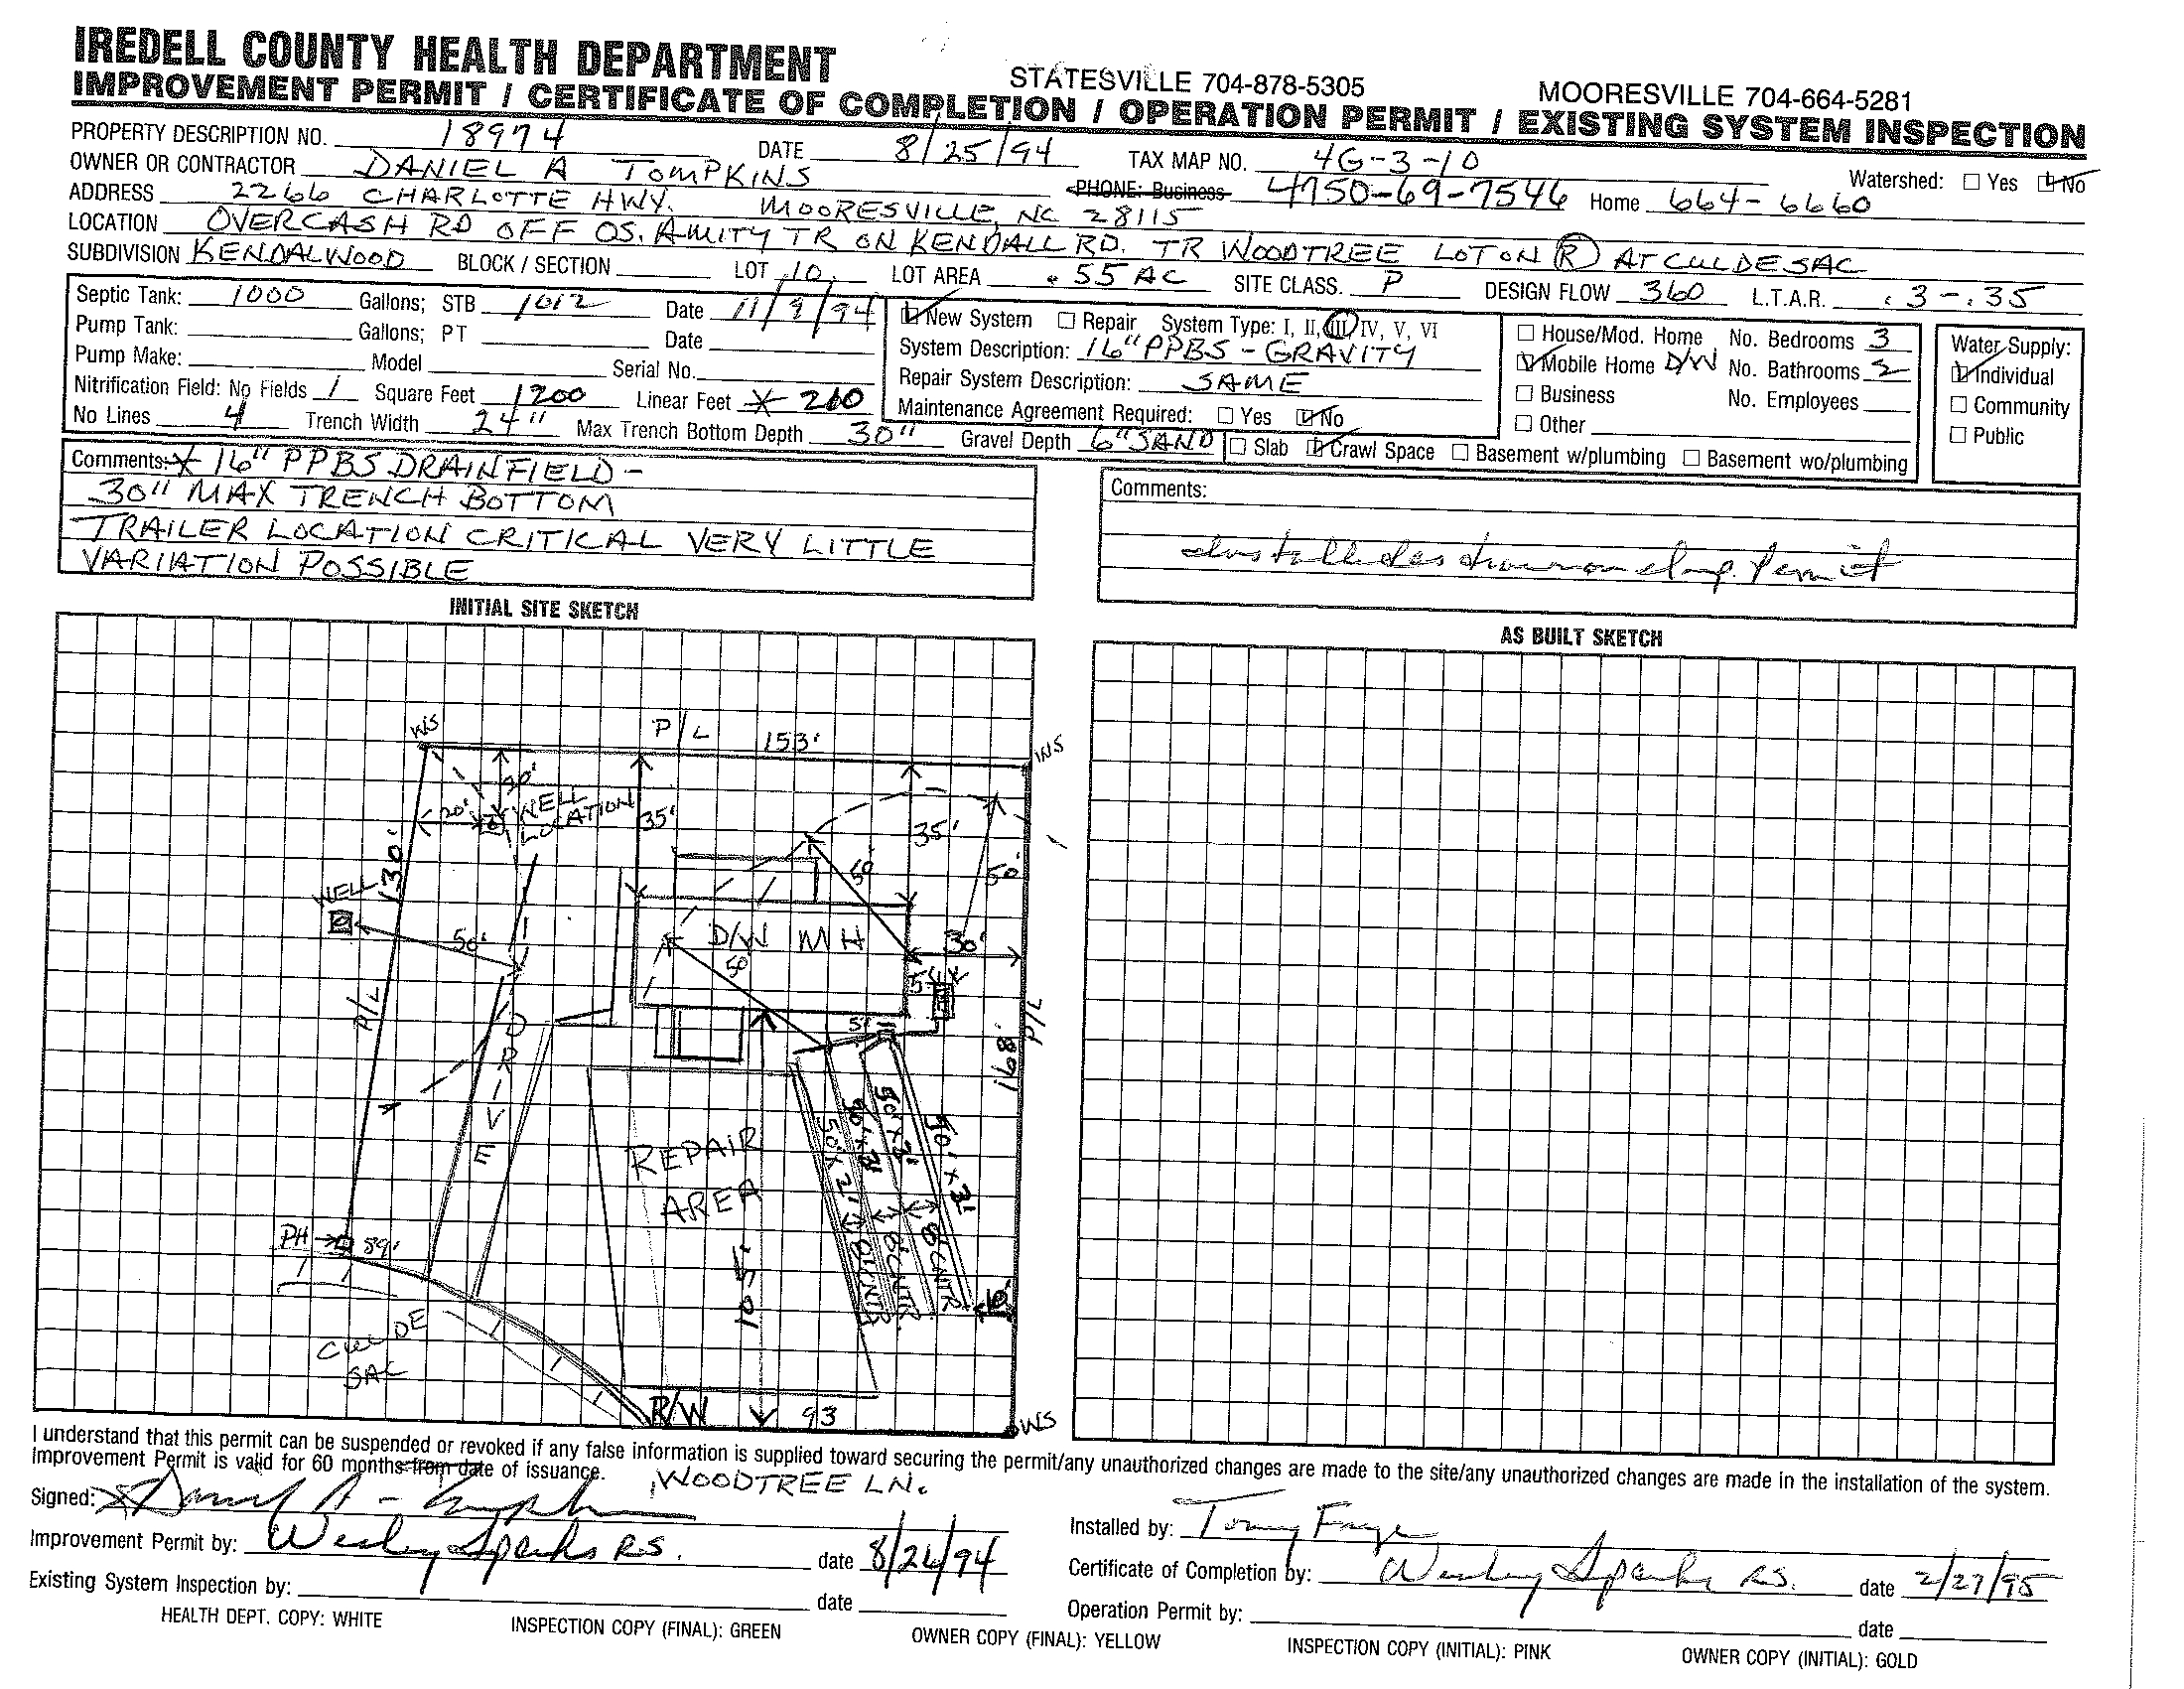 IREDELL COUNTY HEALTH DEPARTMENT
STATESVILLE 704-878-5305 MOORESVILLE 704-664-5281
IMPROVEMENT PERMIT / CERTIFICATE OF COMPLETION / OPERATION PERMIT / EXISTING SYSTEM INSPECTION
PROPERTY DESCRIPTION NO. 18974 DATE 8/25/94 TAX MAP NO. 4G-3-10 Watershed: Yes No
OWNER OR CONTRACTOR DANIEL A TOMPKINS PHONE: Business 4750-69-7546 Home 664-6660
ADDRESS 2266 CHARLOTTE HWY. MOORESVILLE, NC 28115
LOCATION OVERCASH RD OFF OS. AMITY TR ON KENDALL RD. TR WOODTREE LOT ON R AT CULDESAC
SUBDIVISION KENDALWOOD BLOCK / SECTION LOT 10 LOT AREA .55 AC SITE CLASS. P DESIGN FLOW 360 L.T.A.R. .3-.35
Septic Tank: 1000 Gallons; STB 1012 Date 11/9/94
Pump Tank: Gallons; PT Date
Pump Make: Model Serial No.
Nitrification Field: No Fields 1 Square Feet 1200 Linear Feet X 200
No Lines 4 Trench Width 24" Max Trench Bottom Depth 30" Gravel Depth 6" SAND
New System Repair System Type: I, II, III, IV, V, VI
System Description: 16" PPBS - GRAVITY
Repair System Description: SAME
Maintenance Agreement Required: Yes No
House/Mod. Home No. Bedrooms 3
Mobile Home D/W No. Bathrooms 2
Business No. Employees
Other
Slab Crawl Space Basement w/plumbing Basement wo/plumbing
Water Supply:
Individual
Community
Public
Comments: X 16" PPBS DRAINFIELD -
30" MAX TRENCH BOTTOM
TRAILER LOCATION CRITICAL VERY LITTLE
VARIATION POSSIBLE
Comments:
Installed as drawn on Imp. Permit
INITIAL SITE SKETCH
AS BUILT SKETCH
WS
P/L
153'
WS
20'
20'
WELL
LOCATION
35'
35'
50'
50'
130'
WELL
50'
D/W MH
50
30'
5'
5'
P/L
P/L
168'
DRIVE
REPAIR
AREA
105'
50' x 2'
50' x 3'
50' x 3'
50' x 3'
8' CNTR
8' CNTR
8' CNTR
10'
PH
89'
CUL DE
SAC
R/W
93
WS
I understand that this permit can be suspended or revoked if any false information is supplied toward securing the permit/any unauthorized changes are made to the site/any unauthorized changes are made in the installation of the system.
Improvement Permit is valid for 60 months from date of issuance.
WOODTREE LN.
Signed: Daniel A
Improvement Permit by: Wesley Sparks R.S. date 8/26/94
Existing System Inspection by: date
Installed by: Tony
Certificate of Completion by: Wesley Sparks R.S. date 2/27/95
Operation Permit by: date
HEALTH DEPT. COPY: WHITE INSPECTION COPY (FINAL): GREEN OWNER COPY (FINAL): YELLOW INSPECTION COPY (INITIAL): PINK OWNER COPY (INITIAL): GOLD